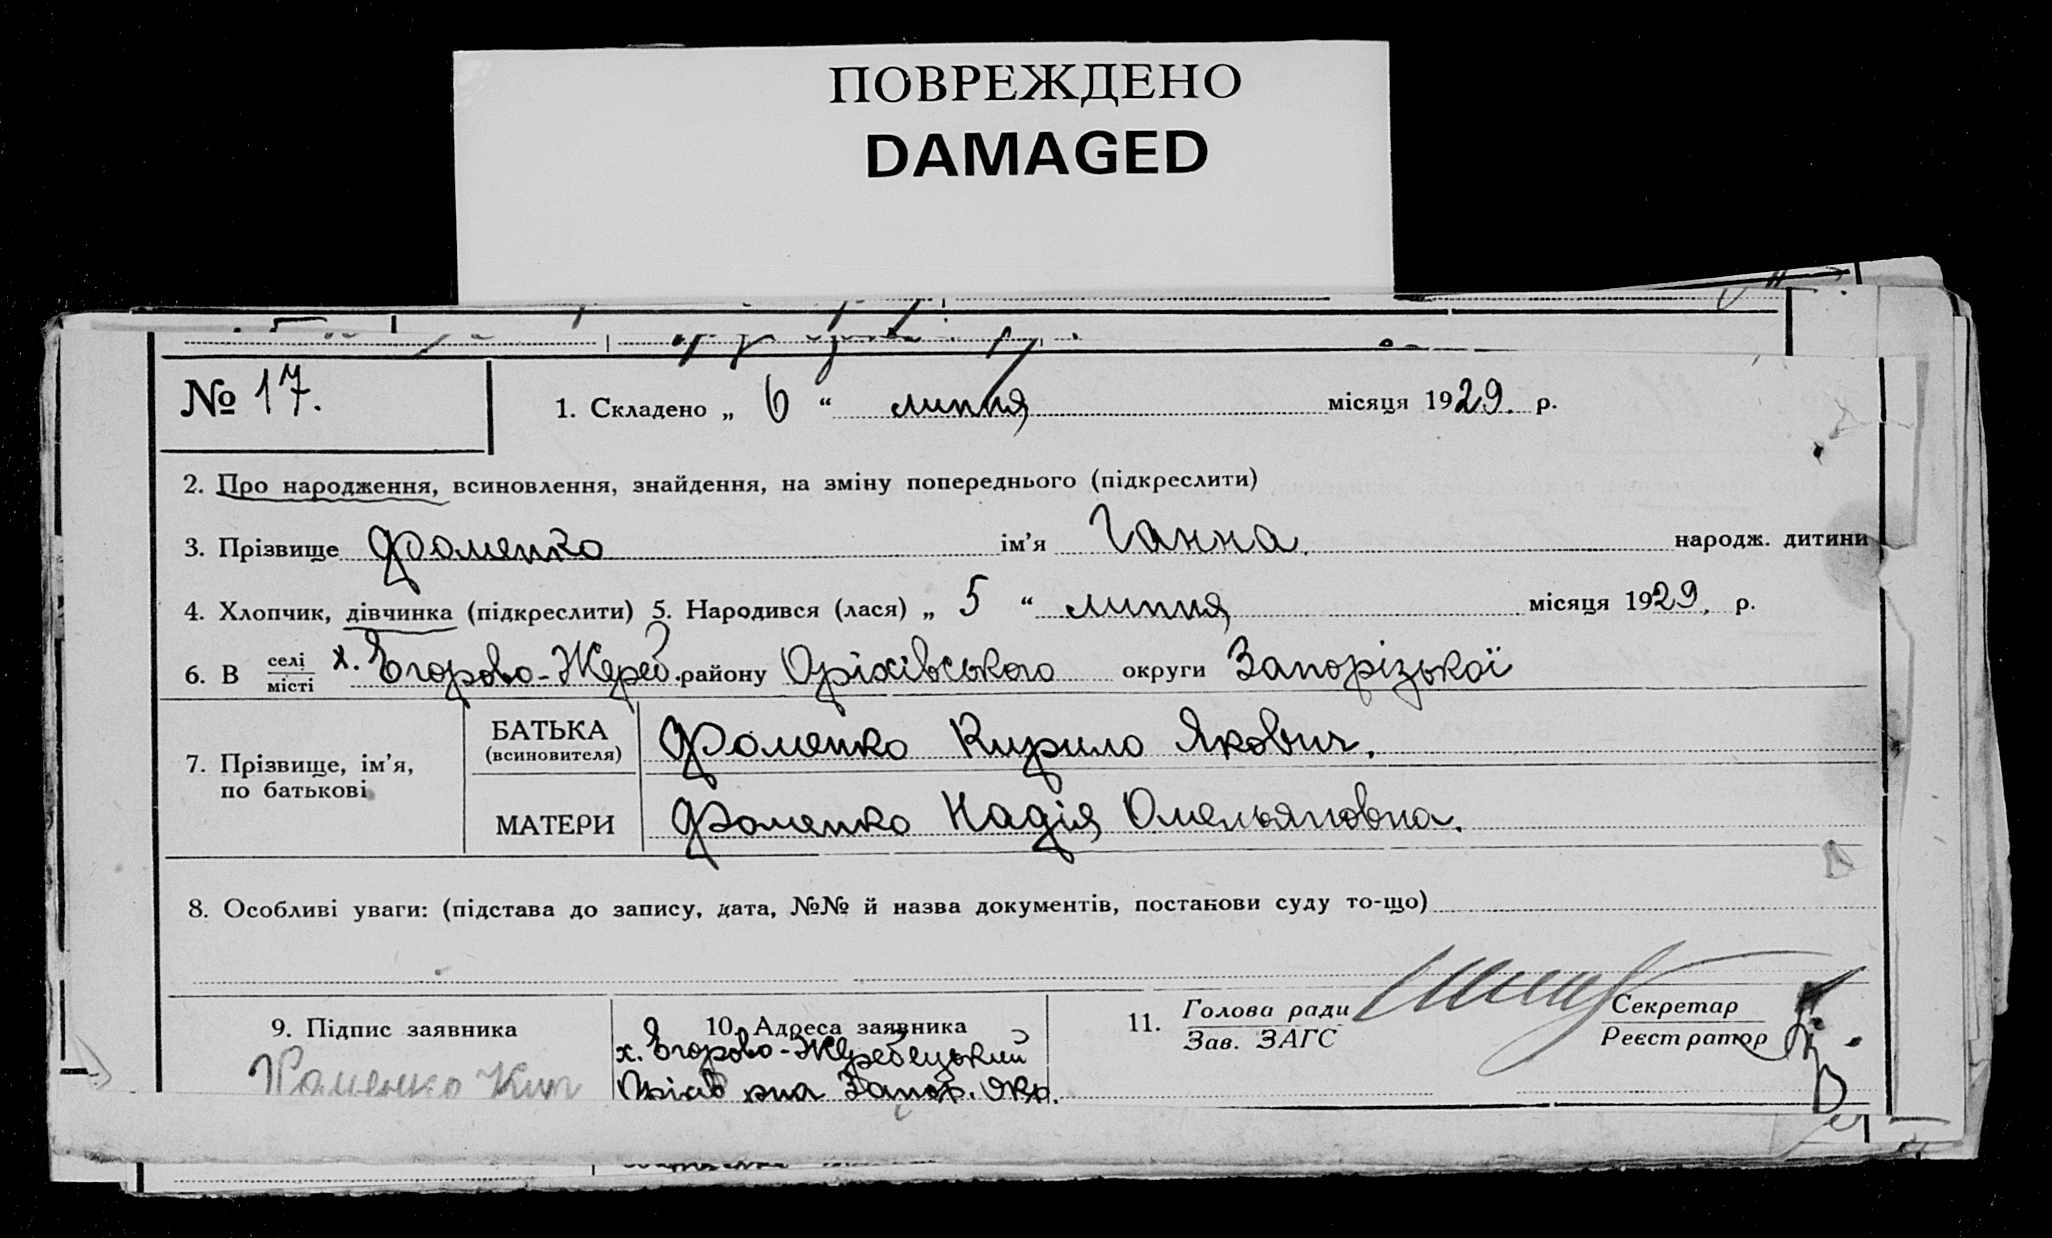 ПОВРЕЖДЕНО
DAMAGED
№ 17.
1. Складено „ 6 “ липня місяця 1929. р.
2. Про народження, всиновлення, знайдення, на зміну попереднього (підкреслити)
3. Прізвище Фоменко ім’я Ганна. народж. дитини
4. Хлопчик, дівчинка (підкреслити) 5. Народився (лася) „ 5 “ липня місяця 1929. р.
6. В селі місті х. Єгорово-Жереб. району Оріхівського округи Запорізької
7. Прізвище, ім’я, по батькові
БАТЬКА (всиновителя) Фоменко Кирило Якович.
МАТЕРИ Фоменко Надія Омельяновна.
8. Особливі уваги: (підстава до запису, дата, №№ й назва документів, постанови суду то-що)
9. Підпис заявника
Фоменко Кир
10. Адреса заявника
х. Єгорово-Жеребецький
Оріхів рна Запор. Окр.
11. Голова ради
Зав. ЗАГС
Секретар
Реєстратор